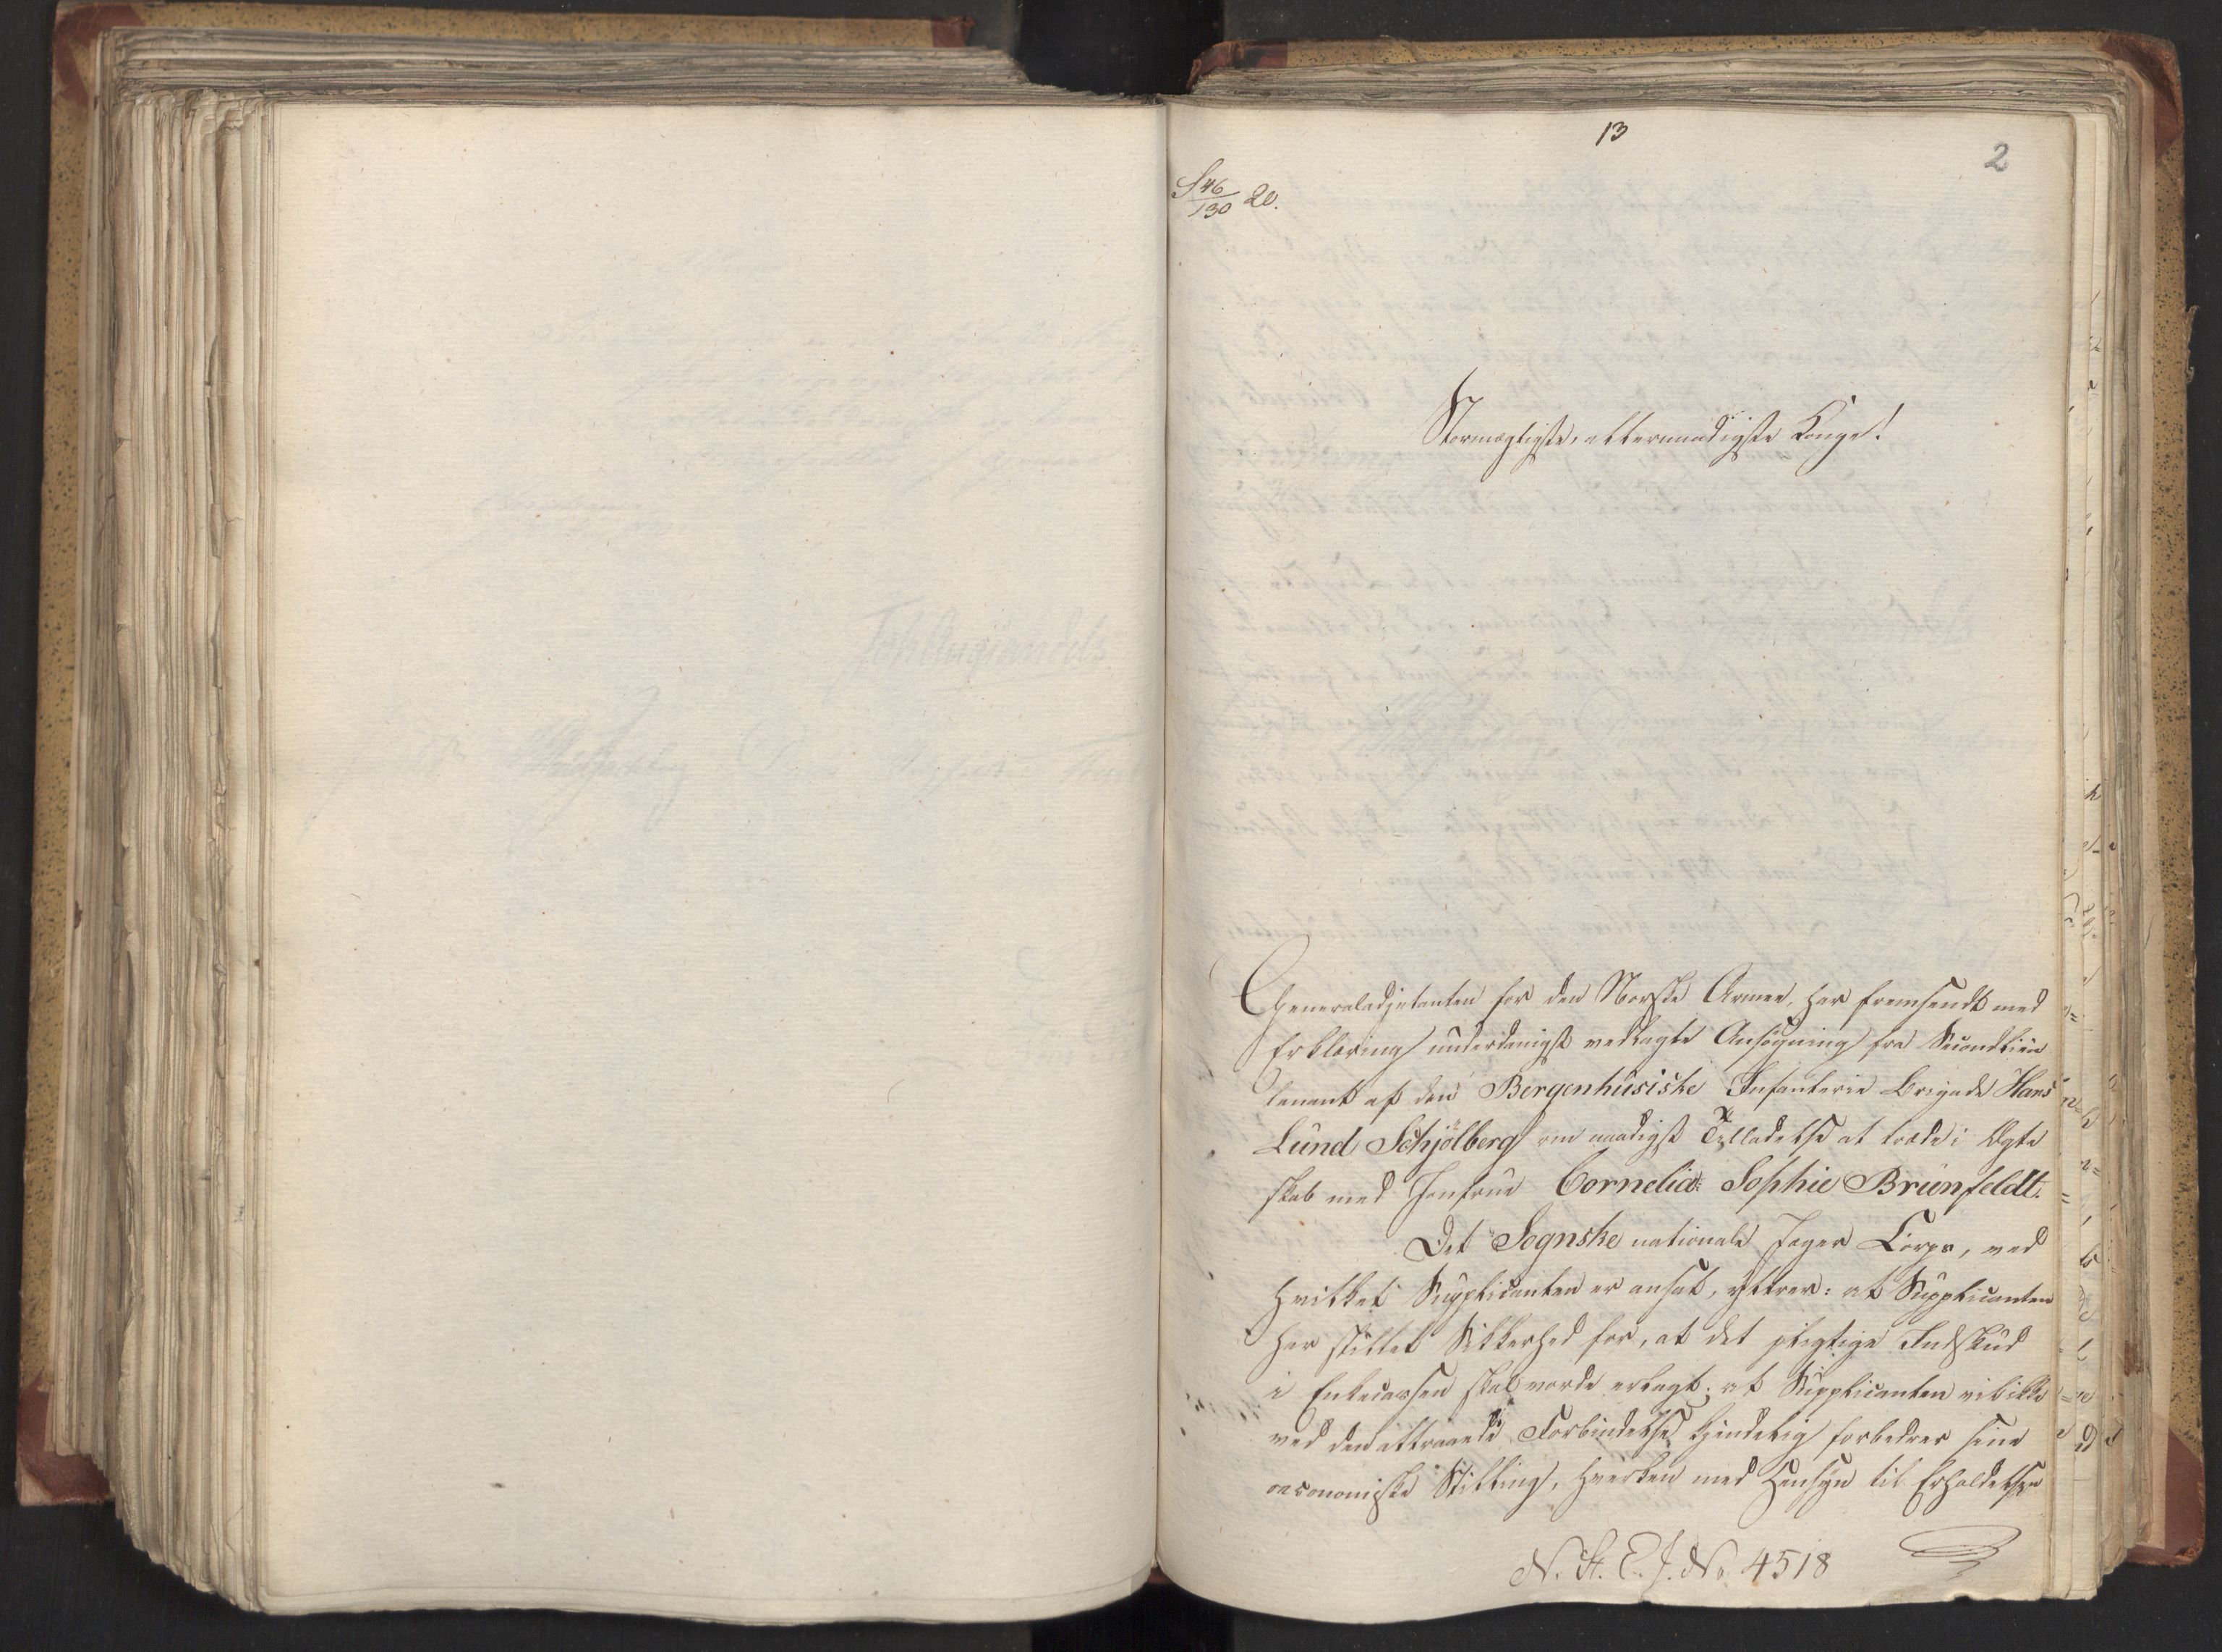 13
2
S 46/130 20.
Stormægtigste, allernaadigste Konge!
Generaladjutanten for den Norske Armee, har fremsendt med
Erklæring underdanigst vedlagte Ansøgning fra Secondlieu
tenant af den Bergenhusiske Infanterie Brigade Hans
Lund Schjölberg om naadigst Tilladelse at træde i Ægte
skab med Jomfrue Cornelia Sophie Brünfeldt.
Det Sognske nationale Jæger Corps, ved
hvilket Supplicanten er ansat, yttrer: at Supplicanten
har stillet Sikkerhed for, at det pligtige Indskud
i Enkecassen skal vorde erlagt; at Supplicanten vel ikke
ved den attraaede Forbindelse kjendelig forbedrer sine
oeconomiske Stilling, hverken med Hensyn til Erholdelsen
N. St. E. J. No. 4518